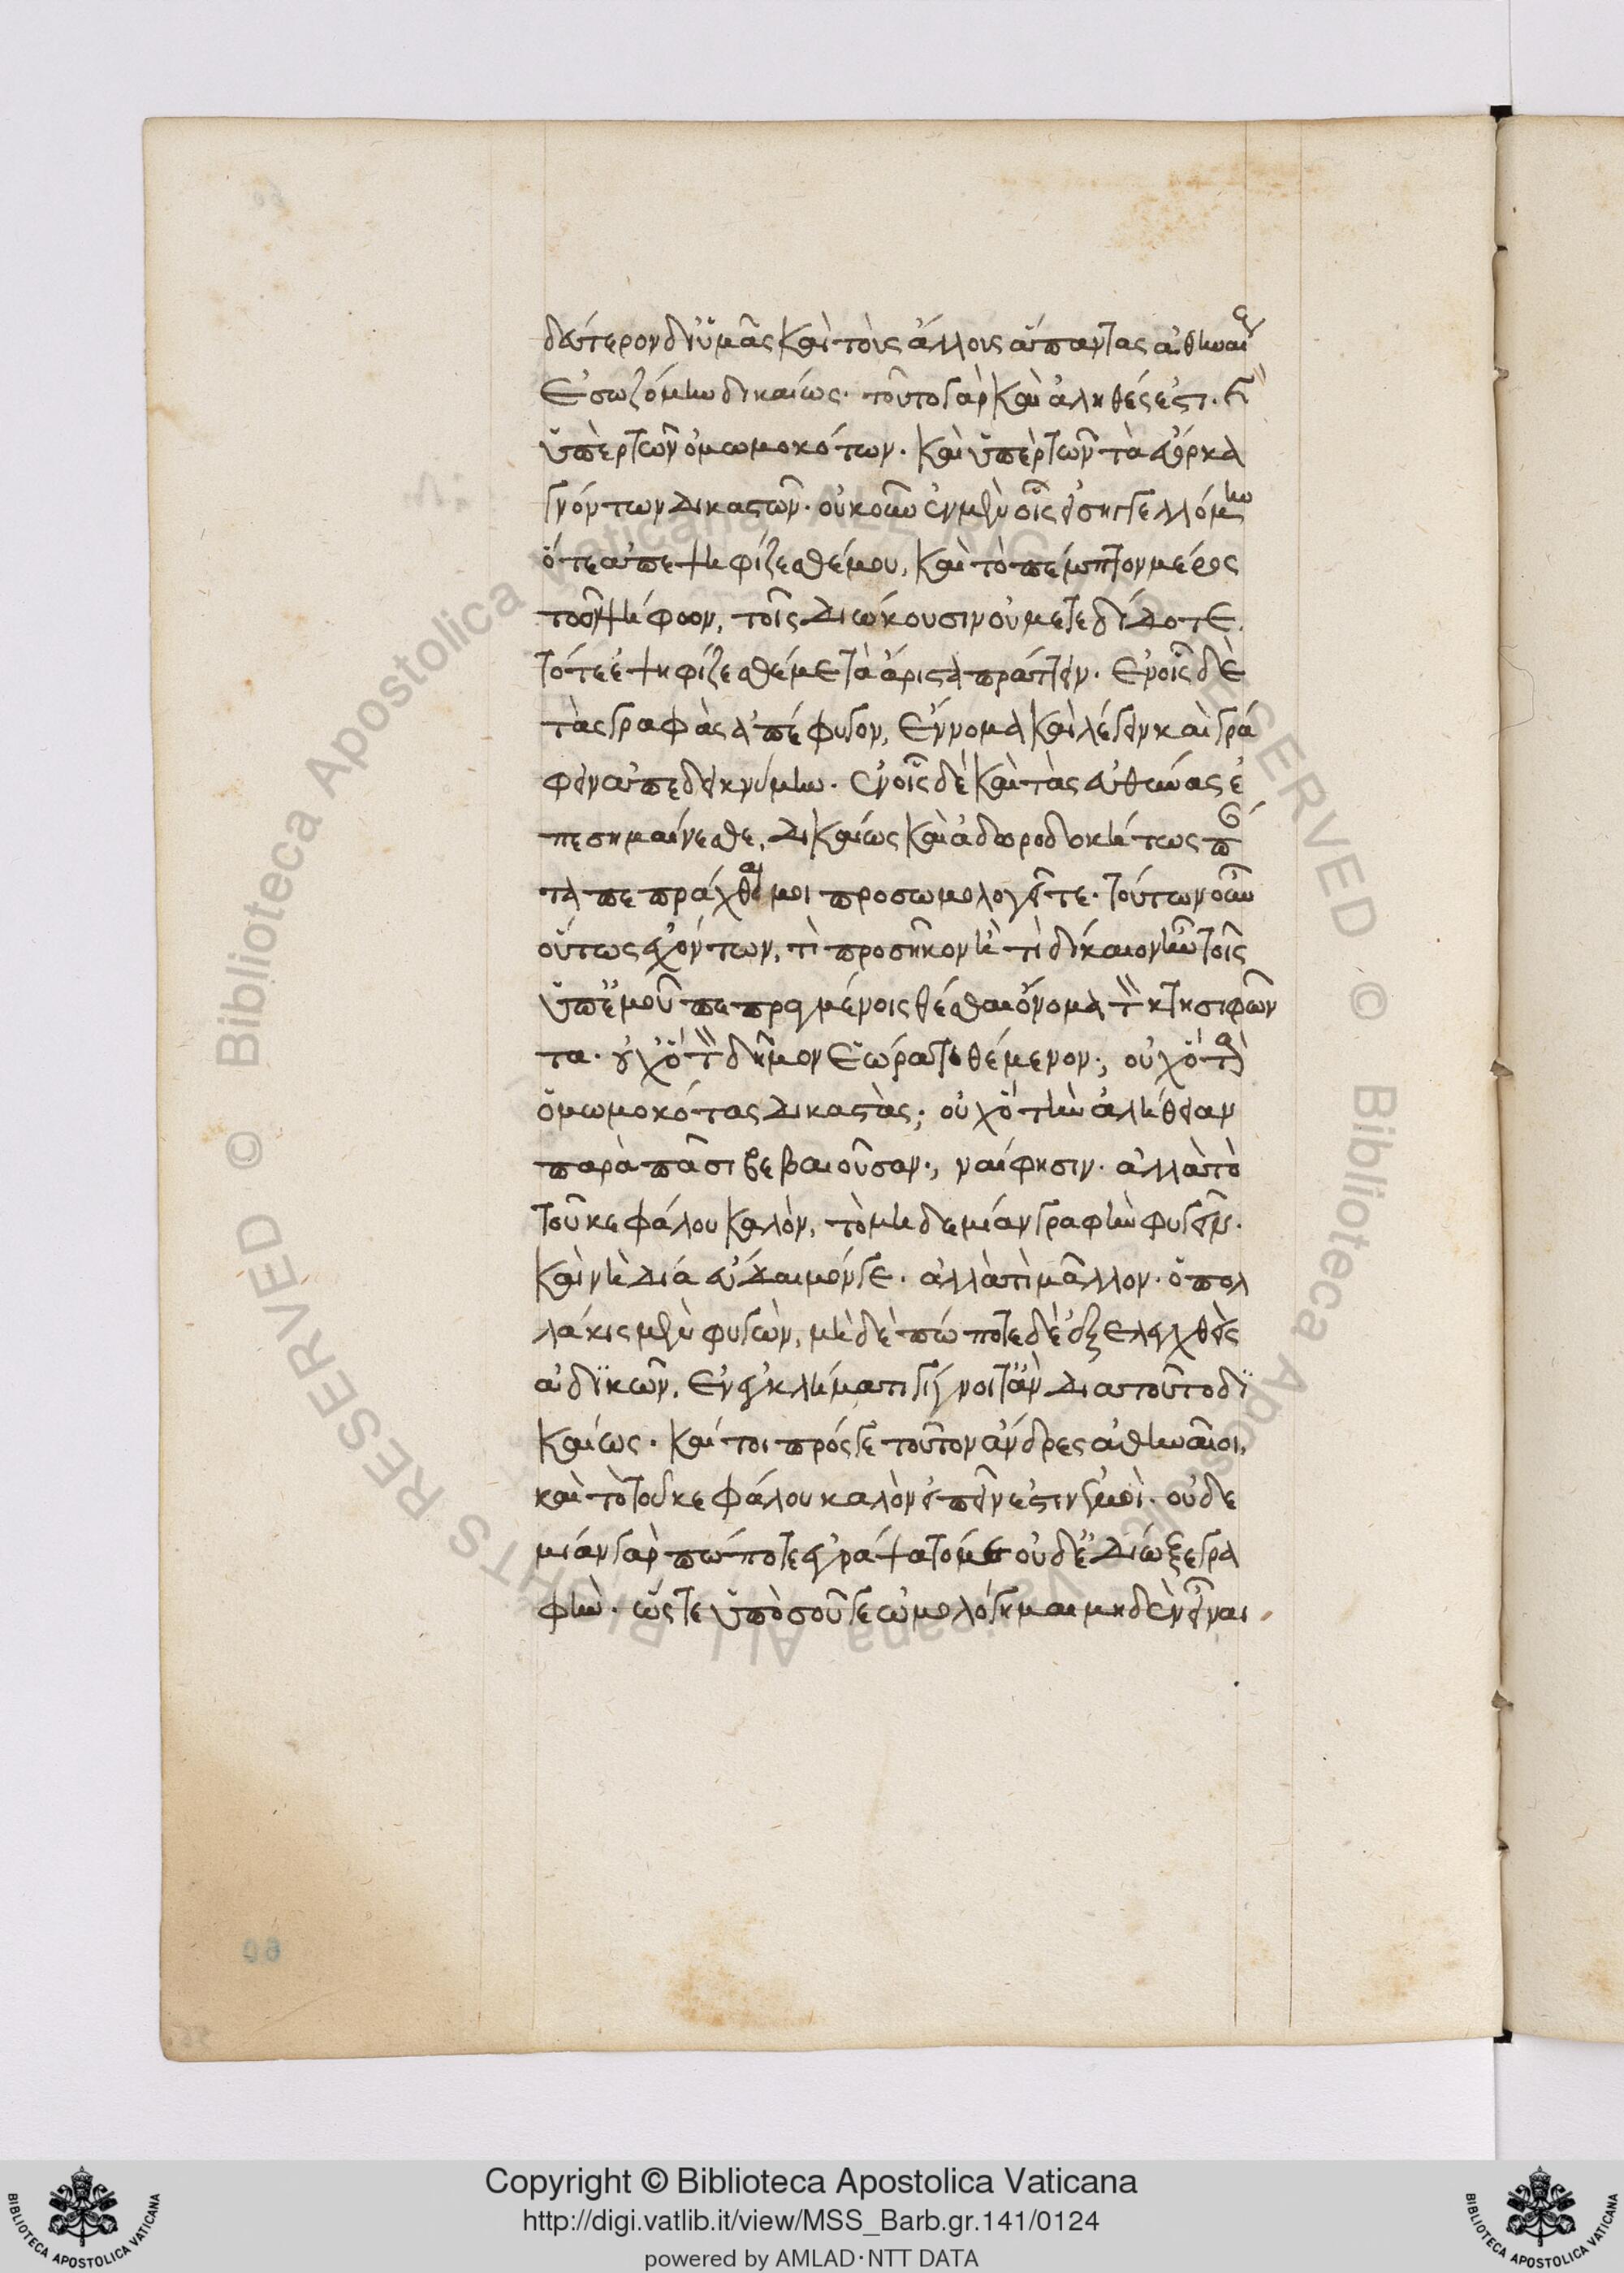 δεύτερον δι' ὑμᾶς καὶ τοὺς ἄλλους ἅπαντας ἀθηναίους
ἐσωζόμην δικαίως. τοῦτο γὰρ καὶ ἀληθές ἐστι. καὶ
ὑπὲρ τῶν ὀμωμοκότων. καὶ ὑπὲρ τῶν τὰ εὔορκα
γνόντων δικαστῶν. οὐκοῦν ἐν μὲν οἷς εἰσηγγελλόμην
ὅτε ἀπεψηφίζεσθέ μου, καὶ τὸ πέμπτον μέρος
τῶν ψήφων, τοῖς διώκουσιν οὐ μετεδίδοτε.
τότε ἐψηφίζεσθέ με τὰ ἄριστα πράττειν. ἐν οἷς δὲ
τὰς γραφὰς ἀπέφυγον, ἔννομα καὶ λέγειν καὶ γρά
φειν ἀπεδεικνύμην. ἐν οἷς δὲ καὶ τὰς εὐθύνας ἐ
πεσημαίνεσθε, δικαίως καὶ ἀδωροδοκήτως πάν
τα πεπρᾶχθαί μοι προσωμολογεῖτε. τούτων οὖν
οὕτως ἐχόντων, τί προσῆκον ἢ τί δίκαιον ἦν τοῖς
ὑπ' ἐμοῦ πεπραγμένοις θέσθαι ὄνομα τὸν κτησιφῶν
τα. οὐχ ὃ τὸν δῆμον ἑώρα τιθέμενον; οὐχ ὃ τοὺς
ὀμωμοκότας δικαστάς; οὐχ ὃ τὴν ἀλήθειαν
παρὰ πᾶσι βεβαιοῦσαν; ναί φησιν. ἀλλὰ τὸ
τοῦ κεφάλου καλὸν, τὸ μηδεμίαν γραφὴν φυγεῖν.
καὶ νὴ δία εὔδαιμόν γε. ἀλλὰ τί μᾶλλον. ὁ πολ
λάκις μὲν φυγὼν, μηδὲ πώποτε δὲ ἐξελεγχθεὶς
ἀδικῶν, ἐν ἐγκλήματι γίγνοιτ' ἂν διὰ τοῦτο δι
καίως. καίτοι πρός γε τοῦτον ἄνδρες ἀθηναῖοι,
καὶ τὸ τοῦ κεφάλου καλὸν εἰπεῖν ἐστιν ἐμοὶ. οὐδε
μίαν γὰρ πώποτε ἐγράψατό με οὐδ' ἐδίωξε γρα
φὴν. ὥστε ὑπὸ σοῦ γε ὡμολόγημαι μηδὲν εἶναι
Copyright © Biblioteca Apostolica Vaticana
http://digi.vatlib.it/view/MSS_Barb.gr.141/0124
powered by AMLAD·NTT DATA